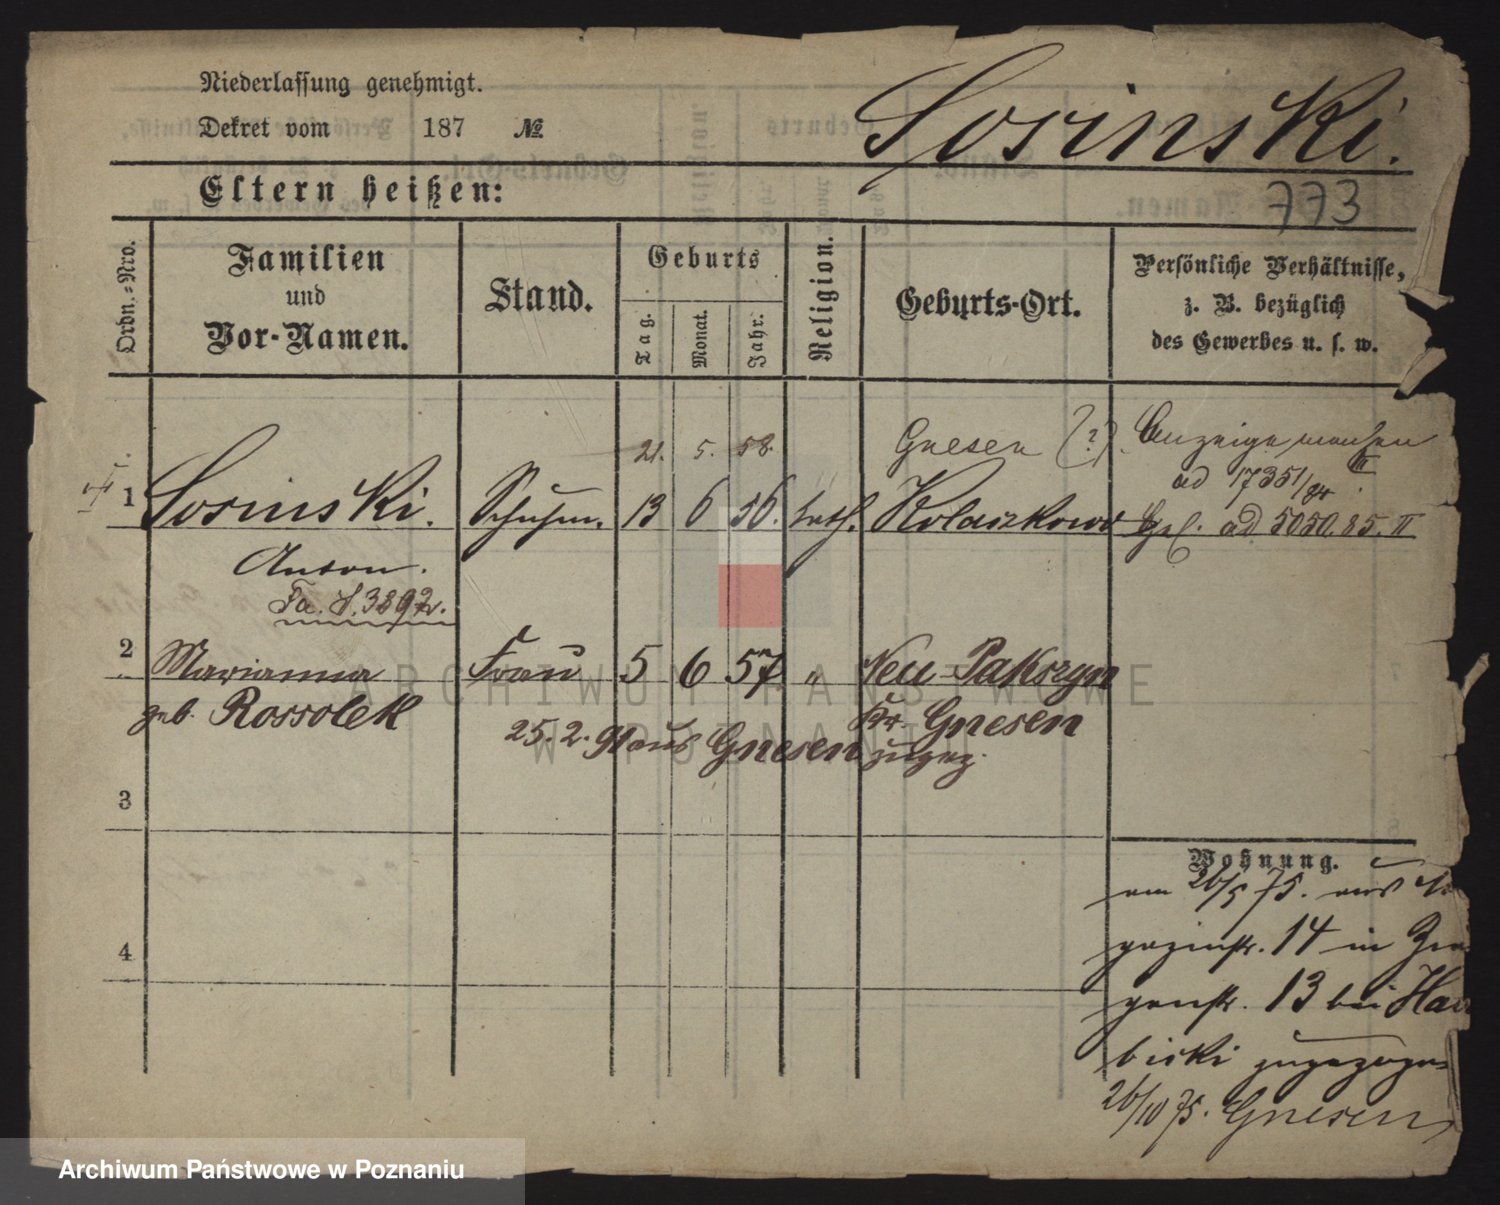 Niederlassung genehmigt.
Dekret vom 187 №
Sosinski.
Eltern heißen:
773
Ordn.-Nro.
Familien
und
Vor-Namen.
Stand.
Geburts
Tag.
Monat.
Jahr.
Religion.
Geburts-Ort.
Persönliche Verhältnisse,
z. B. bezüglich
des Gewerbes u. s. w.
21. 5. 58. Gnesen (?). Anzeige machen
ad 17351/84 III.
1 Sosinski. Schuhm. 13 6 56. kath. Kolaczkowo Gef. ad 5050.85. II
Anton.
Fa. S. 3892.
2 Marianna Frau 5 6 57 " Neu-Pakszyn
geb. Rossolek Kr. Gnesen
25.2.91 aus Gnesen zugez.
3
Wohnung.
am 26/5 75. aus
gazinstr. 14 in
genstr. 13 bei
bicki
26/10 75. Gnesen
4
ARCHIWUM PAŃSTWOWE
W POZNANIU
Archiwum Państwowe w Poznaniu